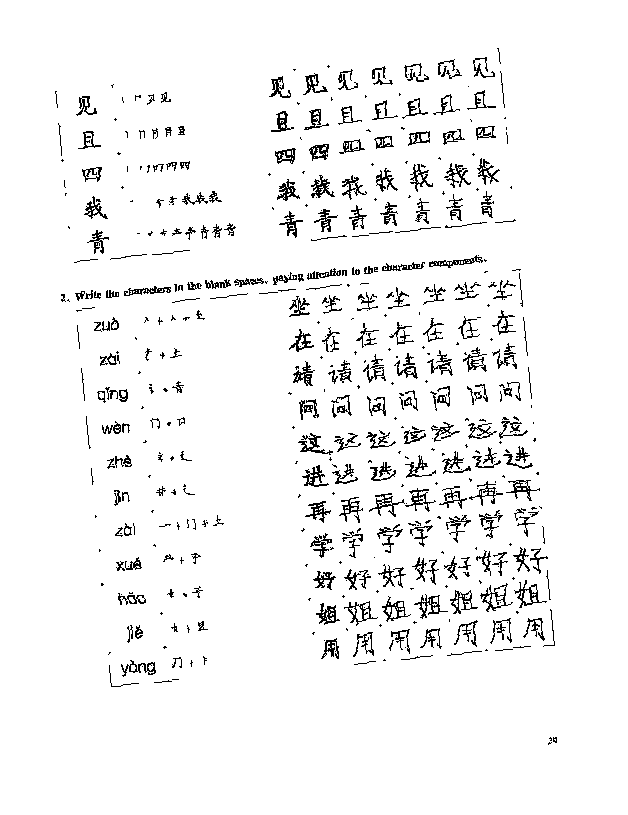 见 见 见 见 见 见 见 见
且 且 且 且 且 且 且 且
四 四 四 四 四 四 四 四
我 我 我 我 我 我 我 我
青 青 青 青 青 青 青 青
2. Write the characters in the blank spaces, paying attention to the character components.
zuò 人 + 人 + 土 坐 坐 坐 坐 坐 坐 坐
zài 土 在 在 在 在 在 在 在
qǐng 讠 + 青 请 请 请 请 请 请 请
wèn 门 + 口 问 问 问 问 问 问 问
zhè 文 + 辶 这 这 这 这 这 这 这
jìn 井 + 辶 进 进 进 进 进 进 进
zài 一 + 冂 + 土 再 再 再 再 再 再 再
xué 子 学 学 学 学 学 学 学
hǎo 女 + 子 好 好 好 好 好 好 好
jiě 女 + 且 姐 姐 姐 姐 姐 姐 姐
yòng 用 用 用 用 用 用 用
29